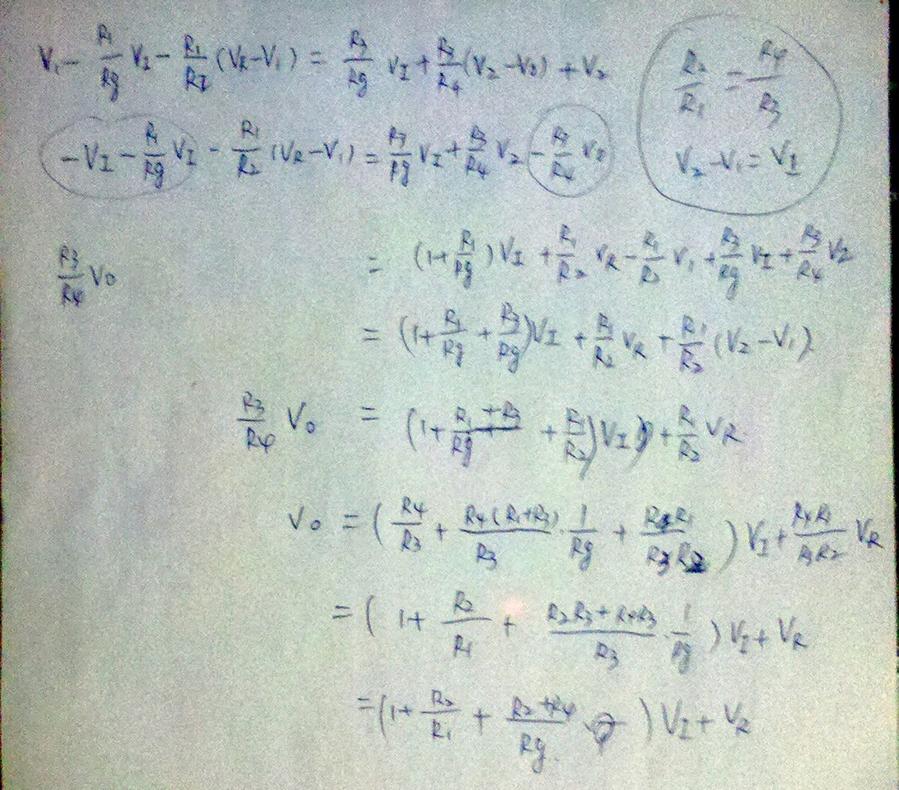 V₁ − R₁/Rg V_I − R₁/R₂ (V_R − V₁) = R₃/Rg V_I + R₃/R₄ (V₂ − V₀) + V₂
R₂/R₁ = R₄/R₃
V₂ − V₁ = V_I
−V_I − R₁/Rg V_I − R₁/R₂ (V_R − V₁) = R₃/Rg V_I + R₃/R₄ V₂ − R₃/R₄ V₀
R₃/R₄ V₀ = (1 + R₁/Rg) V_I + R₁/R₂ V_R − R₁/R₂ V₁ + R₃/Rg V_I + R₃/R₄ V₂
= (1 + R₁/Rg + R₃/Rg) V_I + R₁/R₂ V_R + R₁/R₂ (V₂ − V₁)
R₃/R₄ V₀ = (1 + (R₁ + R₃)/Rg + R₁/R₂) V_I + R₁/R₂ V_R
V₀ = (R₄/R₃ + R₄(R₁+R₃)/R₃ · 1/Rg + R₄R₁/R₃R₂) V_I + R₄R₁/R₃R₂ V_R
= (1 + R₂/R₁ + (R₂R₃ + R₄R₃)/R₃ · 1/Rg) V_I + V_R
= (1 + R₂/R₁ + (R₂ + R₄)/Rg) V_I + V_R